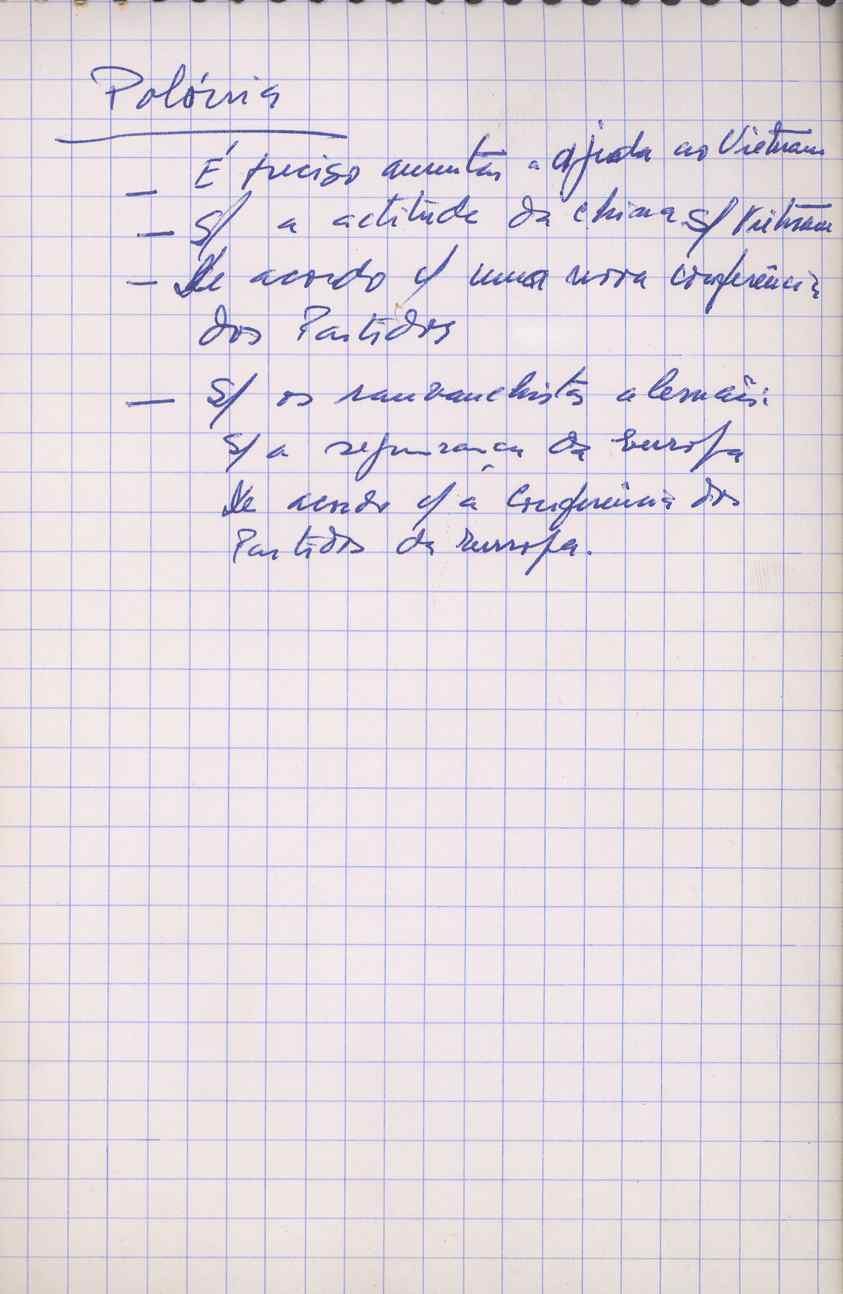 Polónia
— É preciso aumentar a ajuda ao Vietnam
— S/ a actitude da China S/ Vietnam
— De acordo c/ uma nova conferência
dos Partidos
— S/ os revanchistas alemães:
S/ a segurança da Europa
De acordo c/ a Conferência dos
Partidos da Europa.